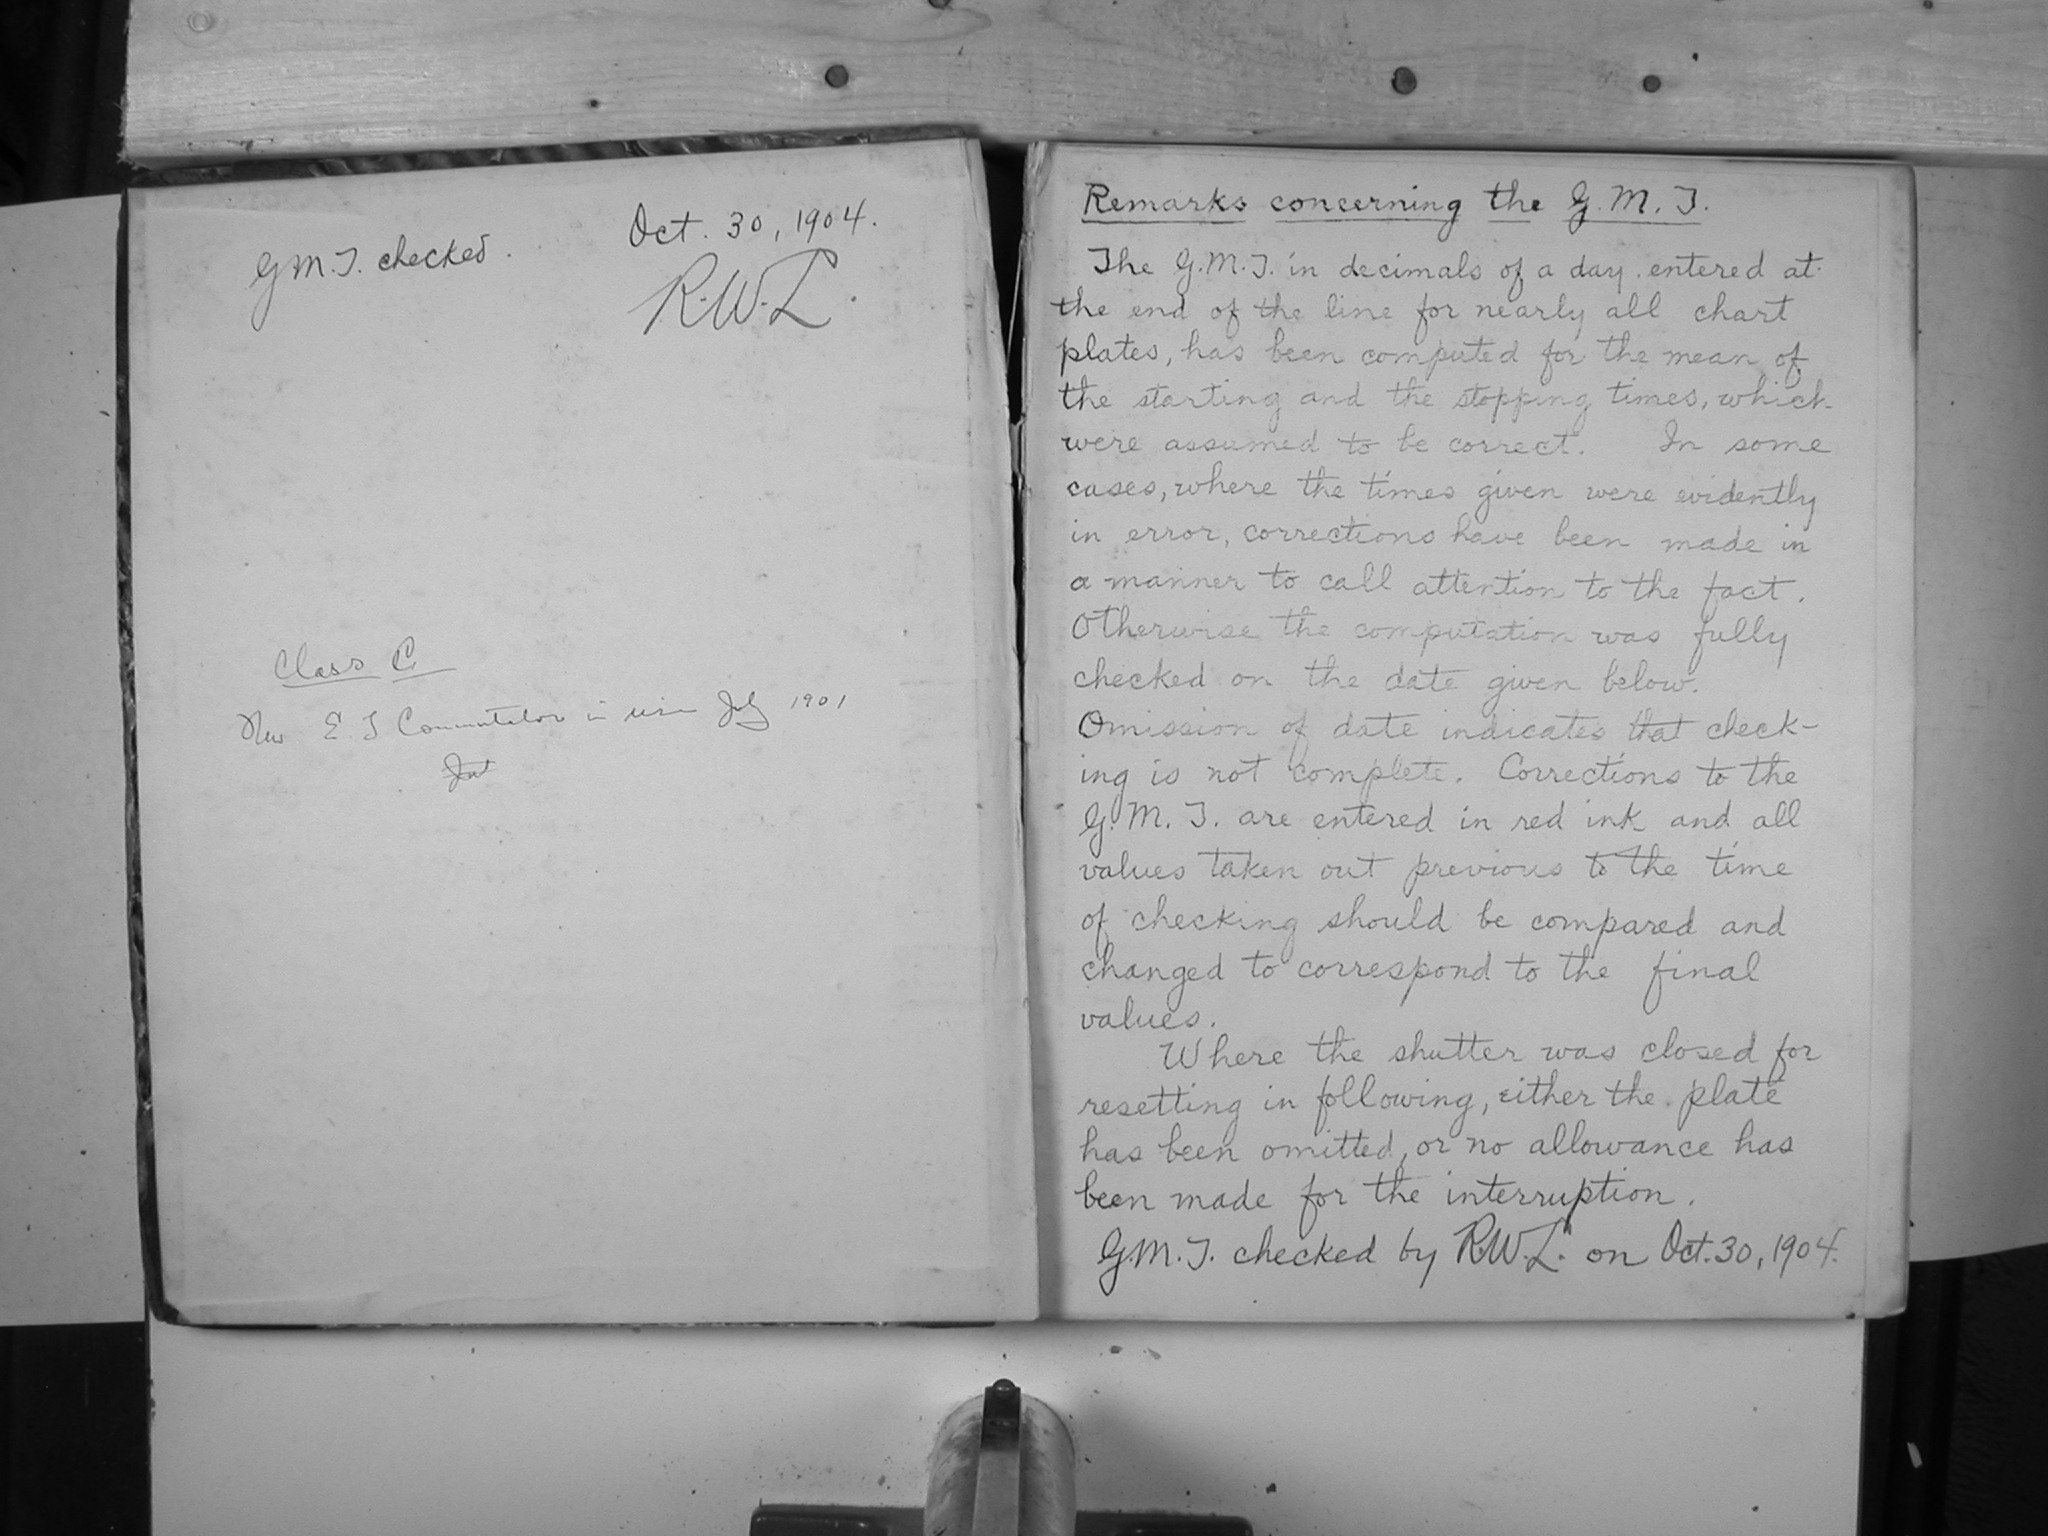 G.M.T. checked.
Oct. 30, 1904.
R.W.L.
Class C
New E. T Commutator in use July 1901
Remarks concerning the G.M.T.
The G.M.T. in decimals of a day, entered at
the end of the line for nearly all chart
plates, has been computed for the mean of
the starting and the stopping times, which
were assumed to be correct. In some
cases, where the times given were evidently
in error, corrections have been made in
a manner to call attention to the fact.
Otherwise the computation was fully
checked on the date given below.
Omission of date indicates that check-
ing is not complete. Corrections to the
G.M.T. are entered in red ink and all
values taken out previous to the time
of checking should be compared and
changed to correspond to the final
values.
Where the shutter was closed for
resetting in following, either the plate
has been omitted, or no allowance has
been made for the interruption.
G.M.T. checked by R.W.L. on Oct. 30, 1904.